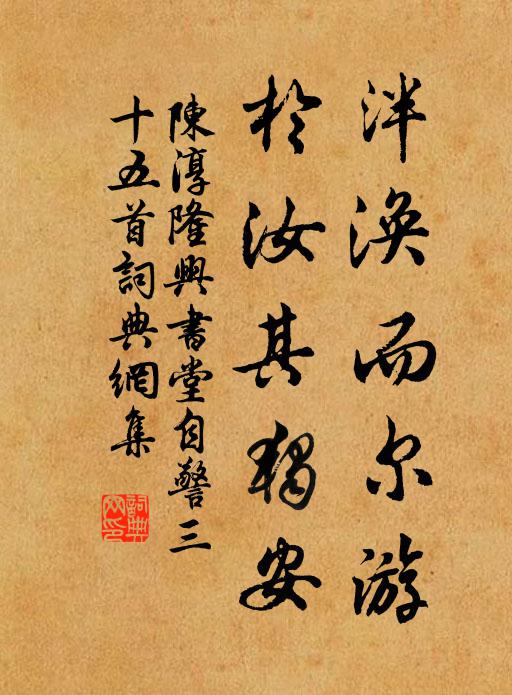 泮涣而尔游
於汝其獨安
陳淳隆興書堂自警三
十五首詞典網集
詞典網印